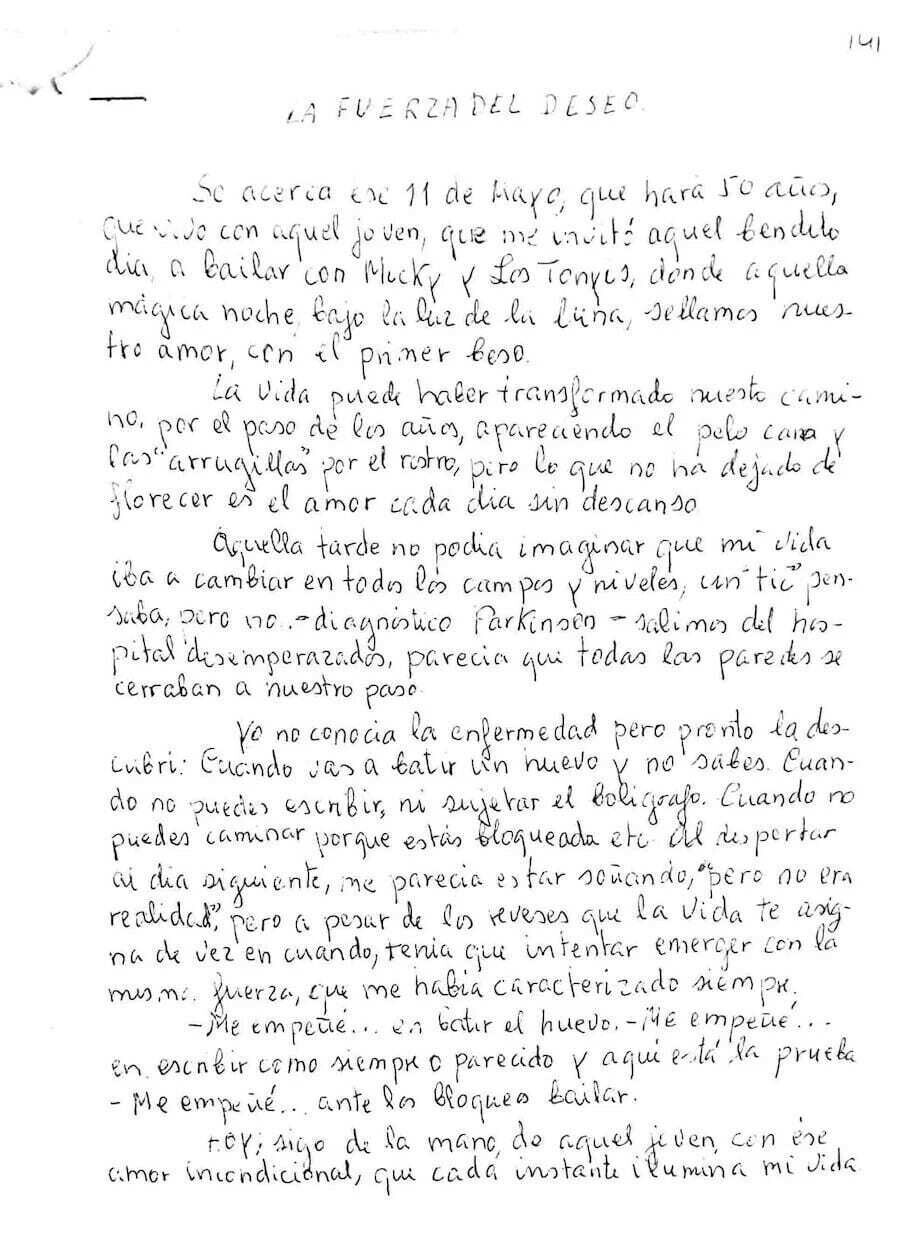 141
LA FUERZA DEL DESEO.
Se acerca ese 11 de Mayo, que hará 50 años,
que vivo con aquel joven, que me invitó aquel bendito
dia, a bailar con Micky y Los Tonys, donde aquella
mágica noche, bajo la luz de la luna, sellamos nues-
tro amor, con el primer beso.
La vida puede haber transformado nuesto cami-
no, por el paso de los años, apareciendo el pelo cano y
las "arrugillas" por el rostro, pero lo que no ha dejado de
florecer es el amor cada dia sin descanso
Aquella tarde no podia imaginar que mi vida
iba a cambiar en todos los campos y niveles, un "tic" pen-
saba, pero no.-diagnóstico Parkinson - salimos del hos-
pital desemperazados, parecia que todas las paredes se
cerraban a nuestro paso.
Yo no conocia la enfermedad pero pronto la des-
cubri: Cuando vas a batir un huevo y no sabes. Cuan-
do no puedes escribir, ni sujetar el boligrafo. Cuando no
puedes caminar porque estás bloqueada etc. Al despertar
al dia siguiente, me parecia estar soñando, "pero no era
realidad", pero a pesar de los reveses que la vida te asig-
na de vez en cuando, tenia que intentar emerger con la
misma fuerza, que me habia caracterizado siempre.
-Me empeñé... en batir el huevo.-Me empeñé...
en escribir como siempre o parecido y aqui está la prueba
- Me empeñé... ante los bloqueos bailar.
Hoy; sigo de la mano, de aquel joven, con ése
amor incondicional, que cada instante ilumina mi vida.